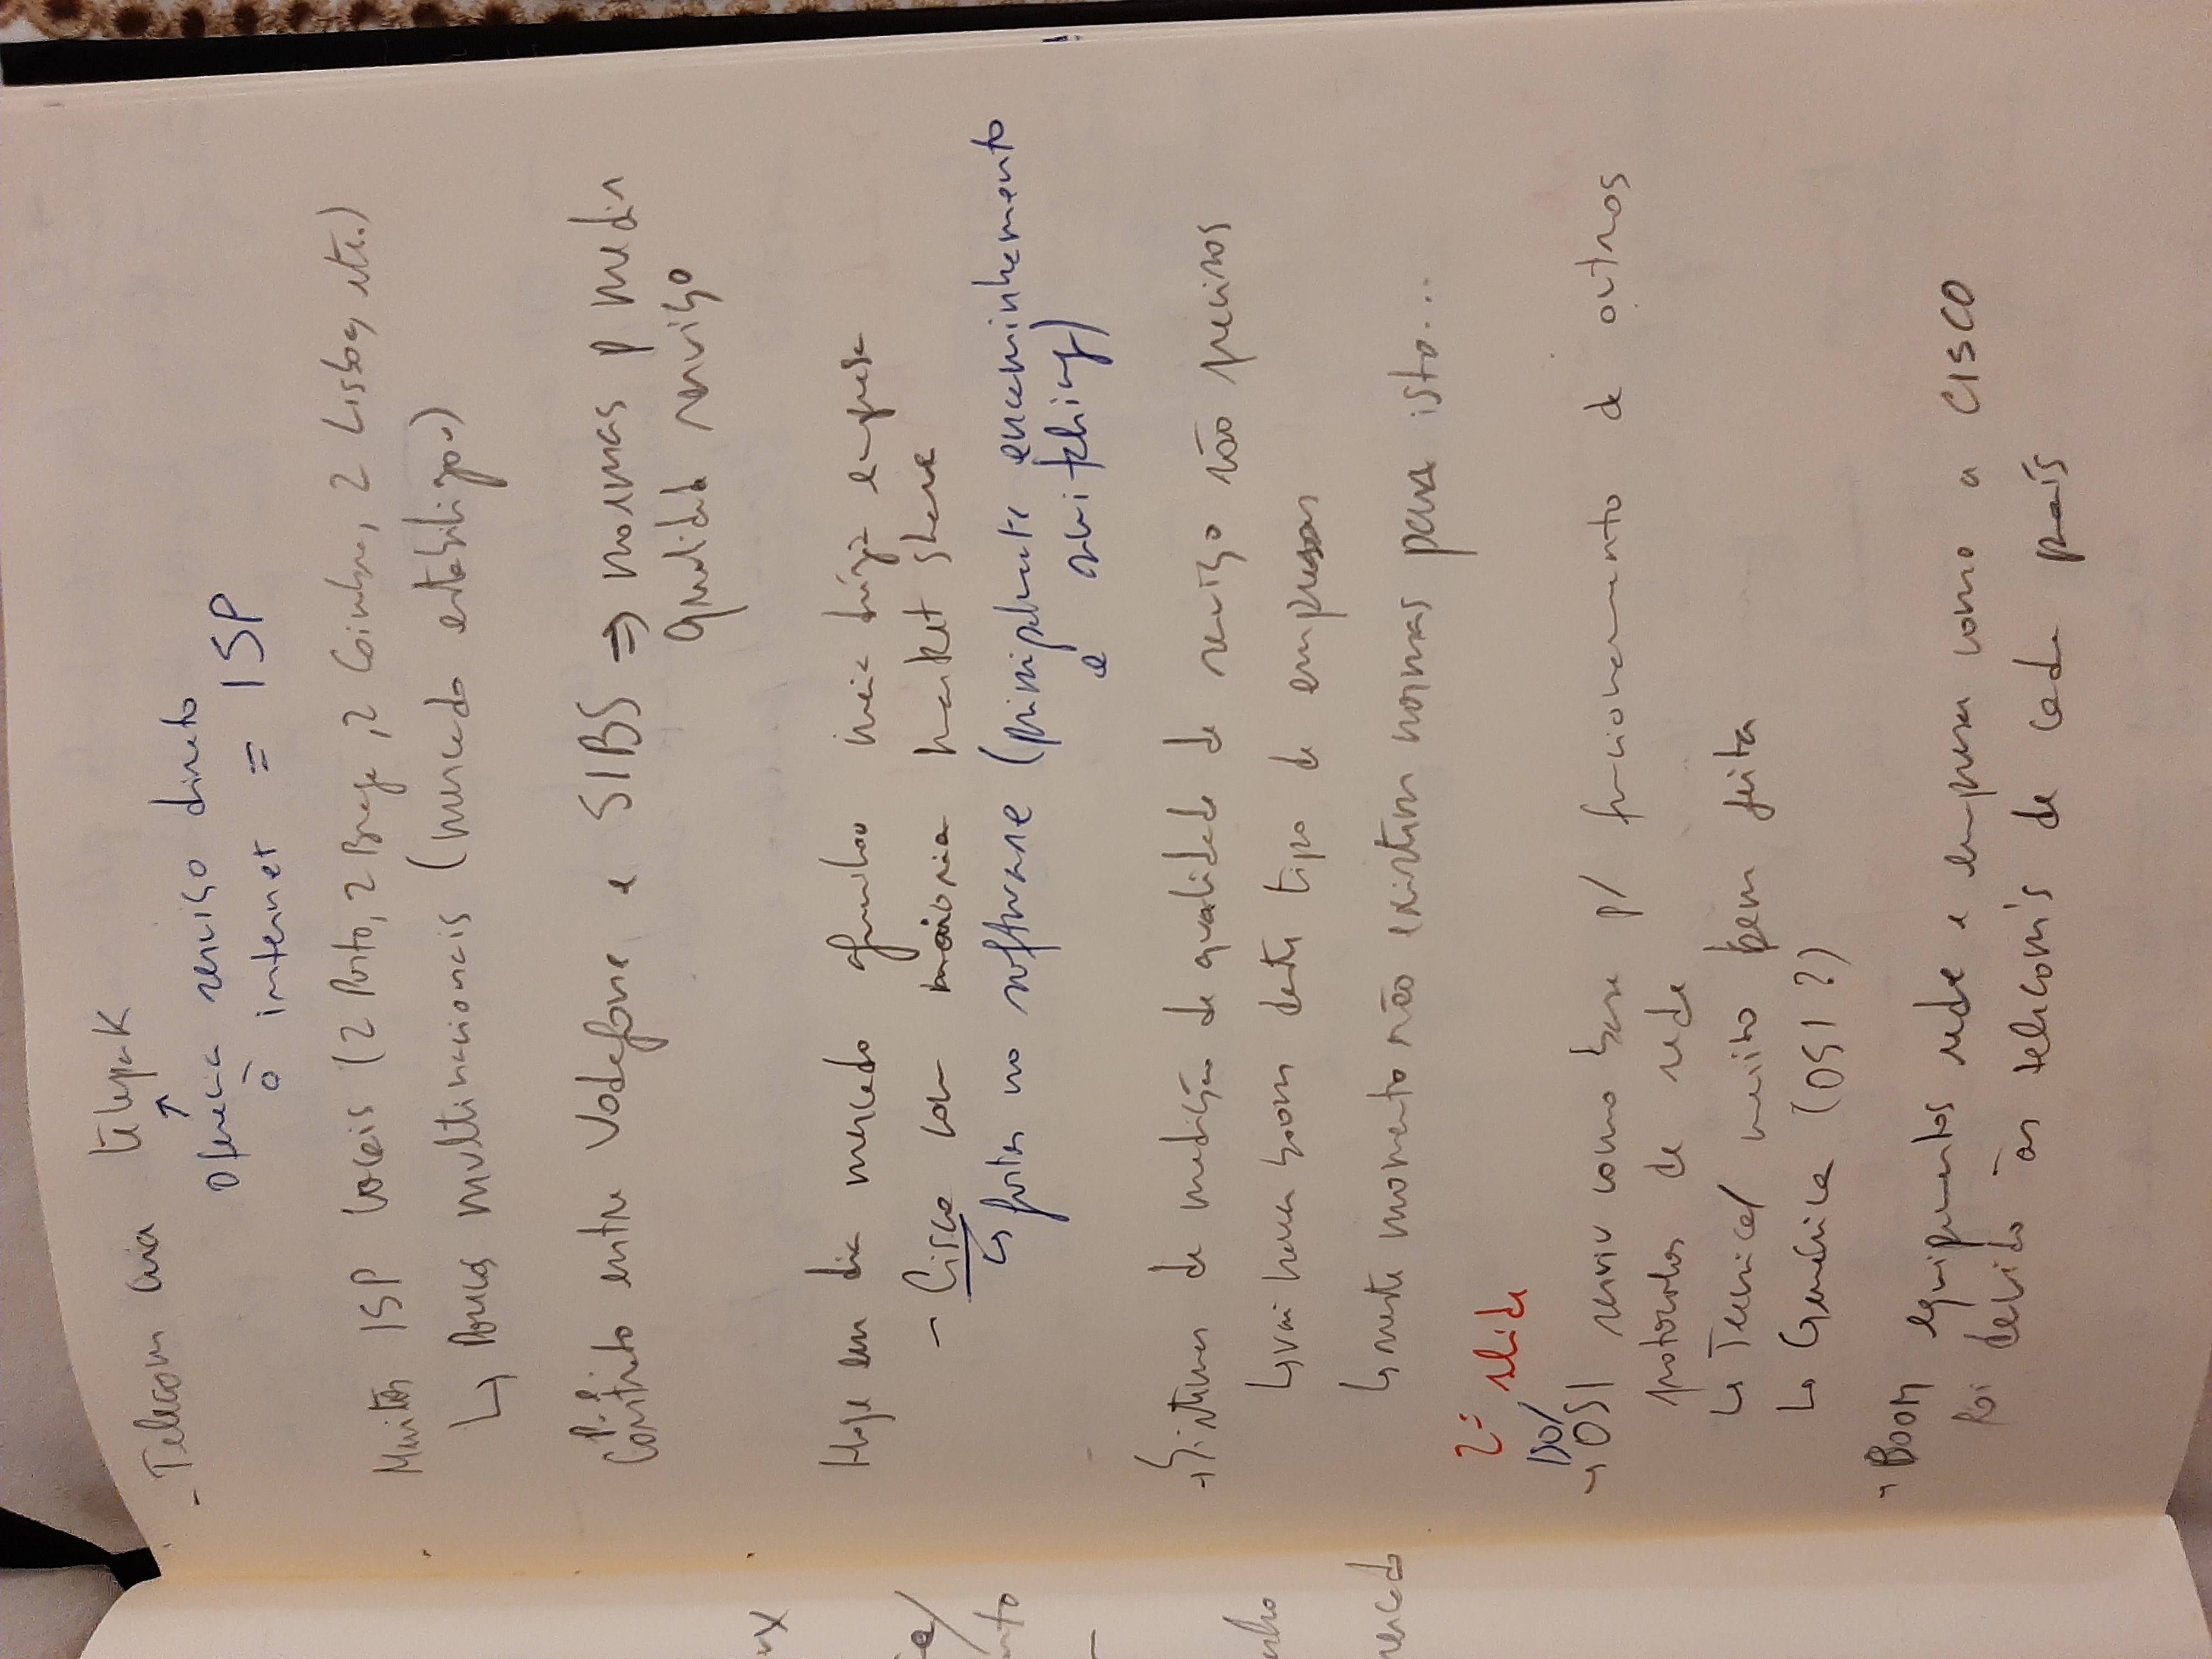 - Telecom cria telepak
↑
Oferecia serviço direto
à internet = ISP
Muitos ISP locais (2 Porto, 2 Braga, 2 Coimbra, 2 Lisboa, etc.)
↳ Poucos multinacionais (mercado estabilizou)
p. e.
Contrato entre Vodafone e SIBS ⇒ normas p medir
qualidade serviço
Hoje em dia mercado afunilou meia dúzia empresa
- Cisco com maioria market share
↳ fortes no software (principalmente encaminhamento
e switching)
→ Sistemas de medição de qualidade de serviço são precisos
↳ vai haver boom deste tipo de empresas
↳ neste momento não existem normas para isto...
2º slide
ISO/
→ OSI serviu como base p/ funcionamento de outros
protocolos de rede
↳ Tecnical muito bem feita
↳ Genérica (OSI?)
→ Boom equipamentos rede e empresa como a CISCO
foi devido às telecom's de cada país
nto
mercado